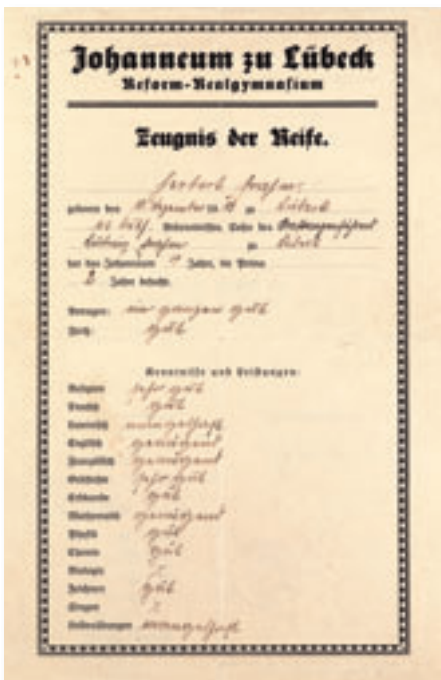 Johanneum zu Lübeck
Reform-Realgymnasium
Zeugnis der Reife.
Herbert Frahm
geboren den 18 Dezember 13 zu Lübeck
ev. luth. Bekenntnisses, Sohn des
Ludwig Frahm zu Lübeck
hat das Johanneum Jahre, die Prima
2 Jahre besucht.
Betragen: im ganzen gut
Fleiß: gut
Kenntnisse und Leistungen:
Religion sehr gut
Deutsch gut
Lateinisch mangelhaft
Englisch genügend
Französisch genügend
Geschichte sehr gut
Erdkunde gut
Mathematik genügend
Physik gut
Chemie gut
Biologie
Zeichnen gut
Singen
Leibesübungen mangelhaft